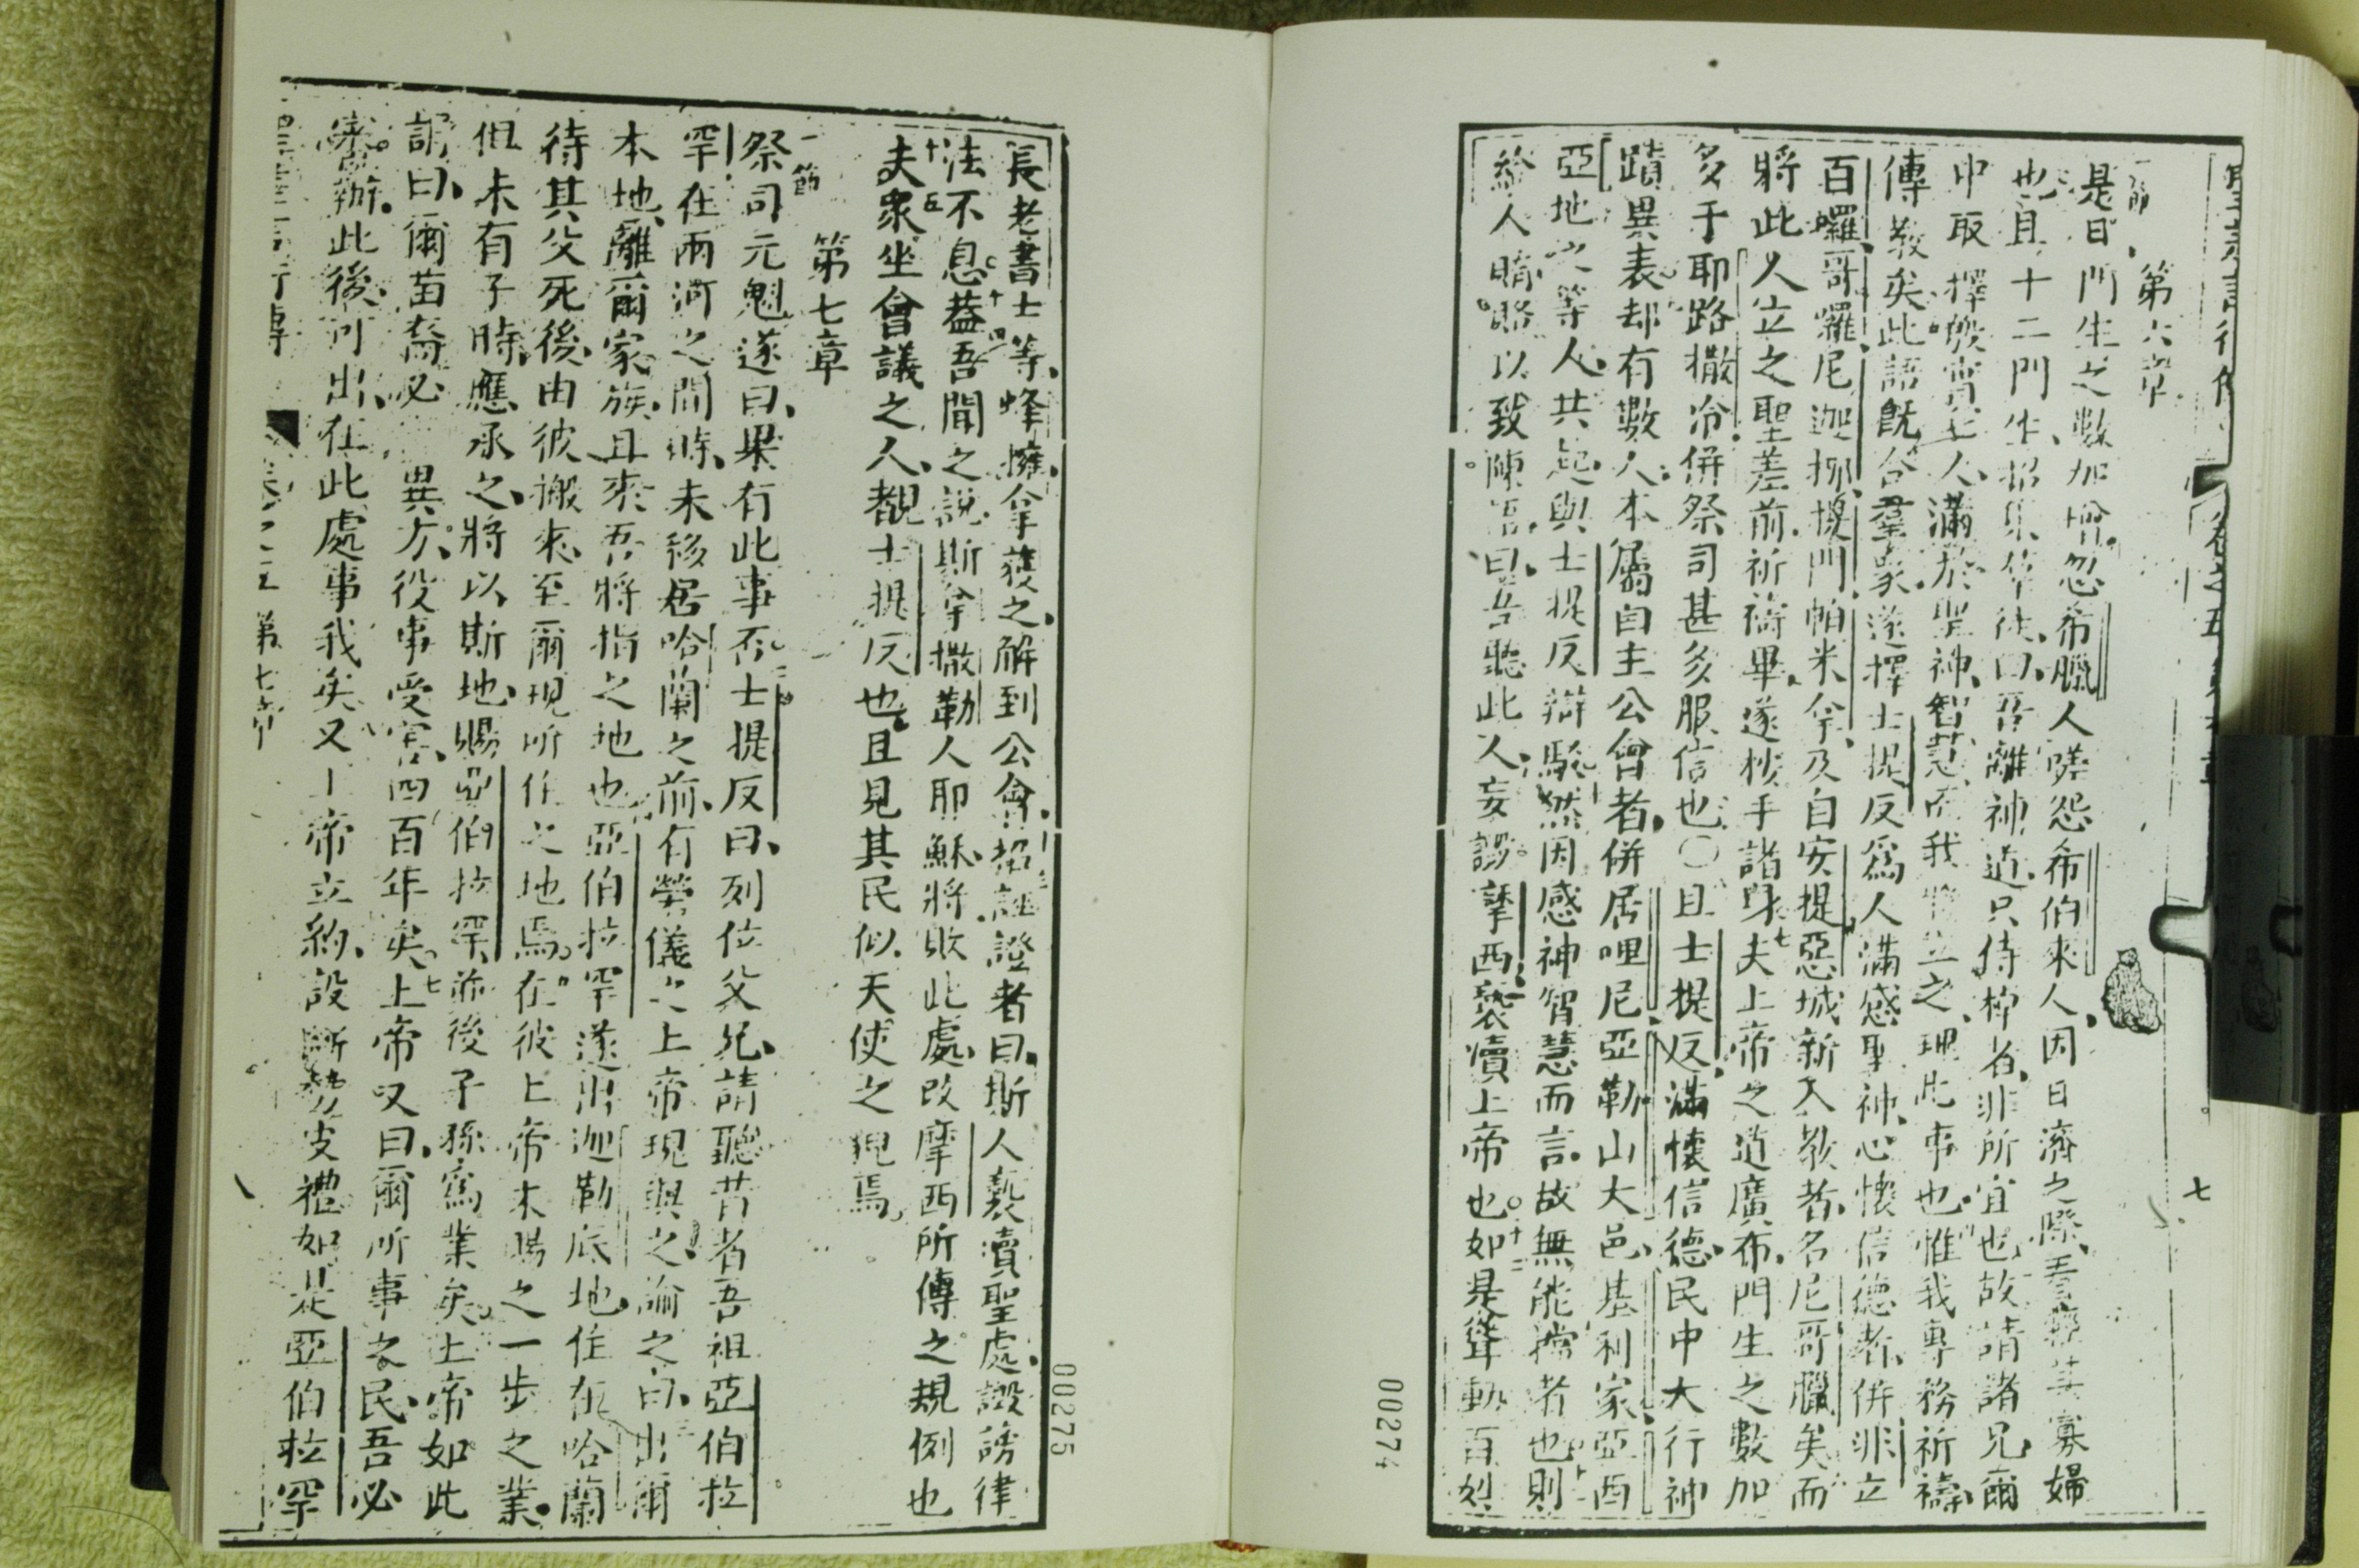 聖差言行傳 卷之五 第六章 七
第六章
一節
是日門生之數加增忽希臘人嗟怨希伯來人因日濟之際看 其寡婦
也且十二門生招集 徒曰吾離神道只侍 者非所宜也故請諸兄爾
中取擇 七人滿於聖神智慧而我將立之理此事也惟我專務祈禱
傳教矣此語既合羣眾遂擇士提反爲人滿感聖神心懷信德者併非立
百囉哥囉尼迦挪 門帕米拿及自安提惡城新入教者名尼哥臘矣而
將此人立之聖差前祈禱畢遂 手諸身七夫上帝之道廣布門生之數加
多于耶路撒冷併祭司甚多服信也〇且士提反滿懷信德民中大行神
蹟異表却有數人本屬自主公會者併居哩尼亞勒山大邑基利家亞西
亞地之等人共起與士提反辯駁然因感神智慧而言故無能擋者也則
給人賄賂以致陳語曰吾聽此人妄謗摩西褻瀆上帝也十二如是聳動百姓
00274
長老書士等蜂擁拿獲之解到公會招誣證者曰斯人褻瀆聖處譭謗律
法不息十四蓋吾聞之說斯拿撒勒人耶穌將敗此處改摩西所傳之規例也
十五夫眾坐會議之人覩士提反也且見其民似天使之貌焉
第七章
一節
祭司元魁遂曰果有此事否二士提反曰列位父兄請聽昔者吾祖亞伯拉
罕在兩河之間時未移居哈蘭之前有榮儀之上帝現與之諭之曰三出爾
本地離爾家族且來吾將指之地也亞伯拉罕遂出迦勒底地住在哈蘭
待其父死後由彼搬來至爾現所住之地焉在彼上帝未賜之一步之業
但未有子時應承之將以斯地賜亞伯拉罕並後子孫爲業矣上帝如此
謂曰爾苗裔必 異方役事受害四百年矣七上帝又曰爾所事之民吾必
審辦此後可出在此處事我矣又上帝立約設斷勢皮禮如是亞伯拉罕
聖差言行傳 卷之五 第七章
00275